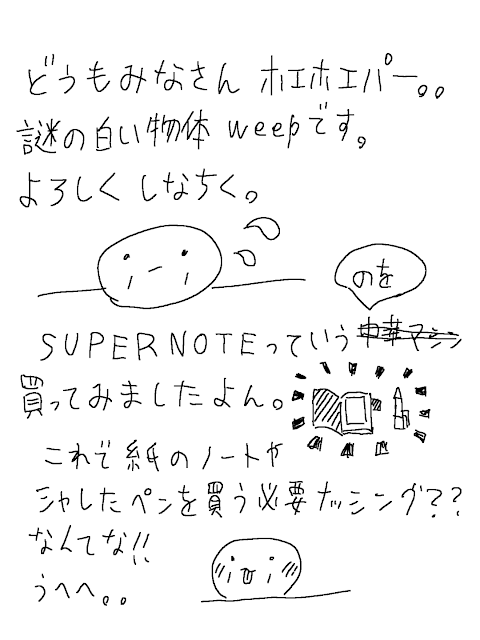 どうもみなさん ホエホエパー。。
謎の白い物体 weepです。
よろしく しなちく。
のを
SUPERNOTEっていう中華マシン
買ってみましたよん。
これで紙のノートや
シャレたペンを買う必要ナッシング??
なんてな!!
うへへ。。